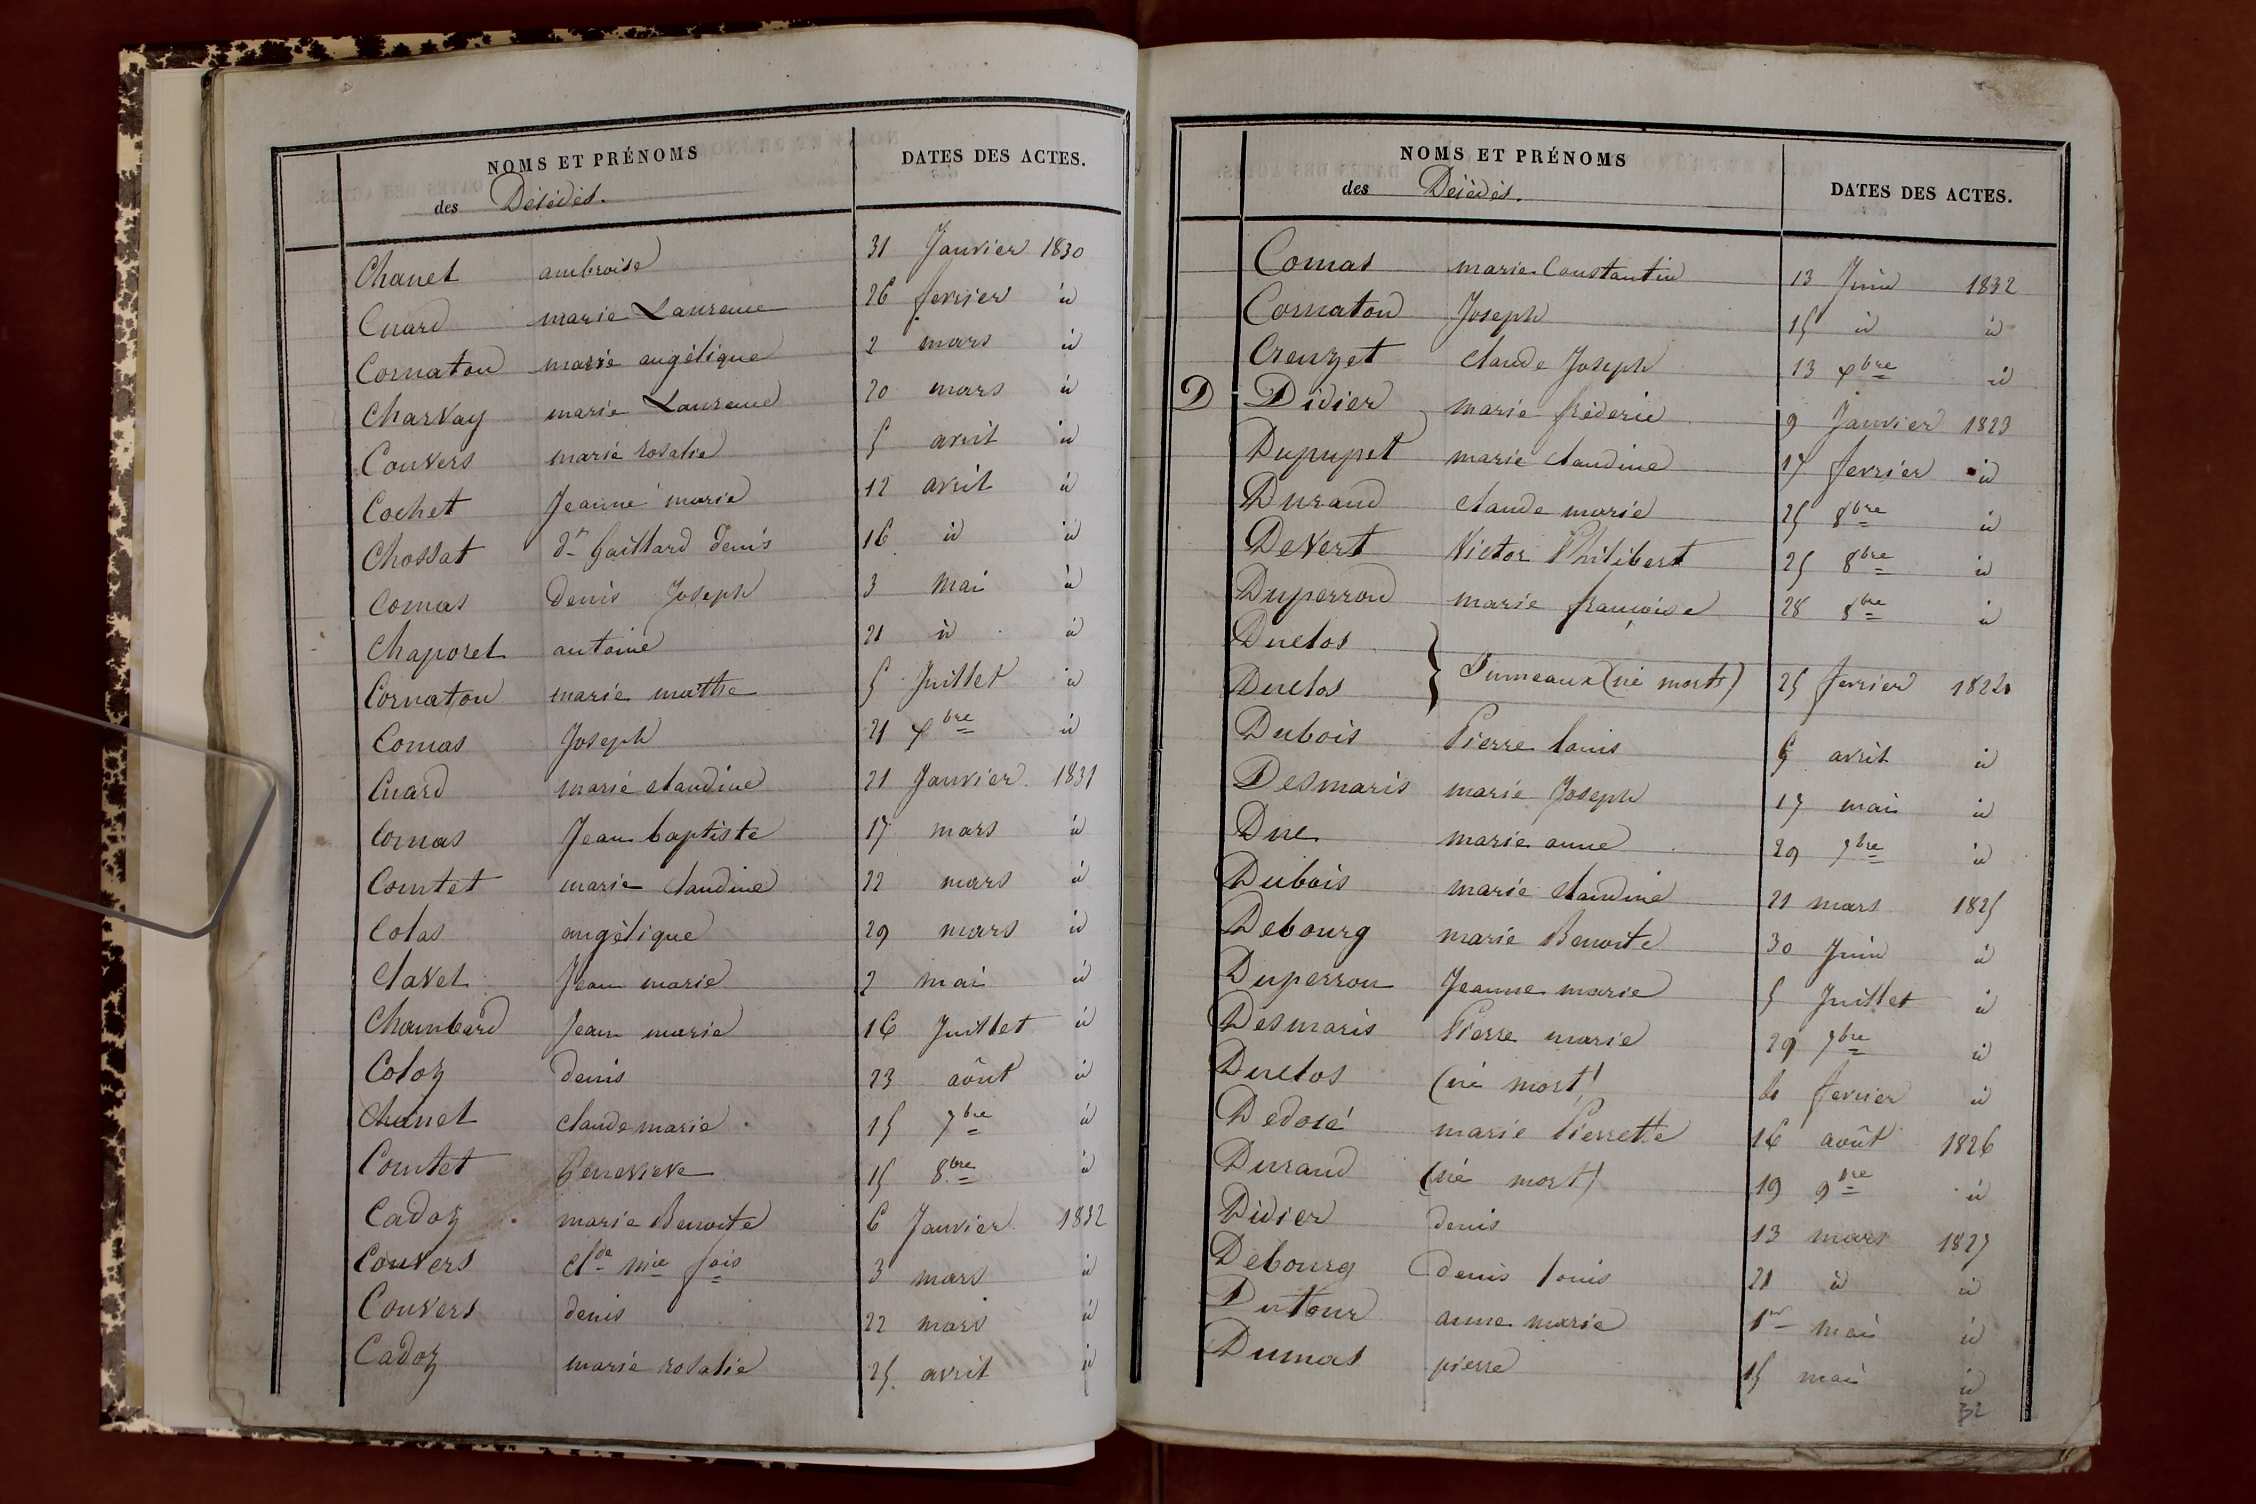 NOMS ET PRÉNOMS
des Décédés.
DATES DES ACTES.
Chanel ambroise 31 Janvier 1830
Cuard marie Laurence 26 fevrier id
Cornaton marie angélique 2 mars id
Charvay marie Laurence 20 mars id
Convers marie rosalie 5 avril id
Cochet Jeanne marie 12 avril id
Chossat dt Gaillard denis 16 id id
Comas denis Joseph 3 mai id
Chaporel antoine 21 id id
Cornaton marie marthe 5 Juillet id
Comas Joseph 21 xbre id
Cuard marie claudine 21 Janvier 1831
Comas Jean baptiste 17 mars id
Comtet marie claudine 22 mars id
Colas angélique 29 mars id
Clavel Jean marie 2 mai id
Chambard Jean marie 16 Juillet id
Coloz denis 23 août id
Chanel claude marie 15 7bre id
Comtet Genevieve 15 8bre id
Cadoz marie Benoite 6 Janvier 1832
Convers Clde mie fois 3 mars id
Convers denis 22 mars id
Cadoz marie rosalie 25 avril id
NOMS ET PRÉNOMS
des Décédés.
DATES DES ACTES.
Comas marie Constantin 13 Juin 1832
Cornaton Joseph 15 id id
Creuzet claude Joseph 13 xbre id
D Didier marie fréderic 9 Janvier 1823
Dupupet marie claudine 17 fevrier id
Durand claude marie 25 8bre id
Devert Victor Philibert 25 8bre id
Duperron marie françoise 28 8bre id
Duclos
Duclos } Jumeaux (né morts) 25 fevrier 1824
Dubois Pierre louis 5 avril id
Desmaris marie Joseph 17 mai id
Duc marie anne 29 7bre id
Dubois marie claudine 21 mars 1825
Debourg marie Benoite 30 Juin id
Duperron Jeanne marie 5 Juillet id
Desmaris Pierre marie 29 7bre id
Duclos (né mort) fevrier id
Dedoré marie Pierrette 16 août 1826
Durand (né mort) 19 9bre id
Didier denis 13 mars 1827
Debourg denis louis 21 id id
Dutour anne marie 1er mai id
Dumas pierre 15 mai id
32